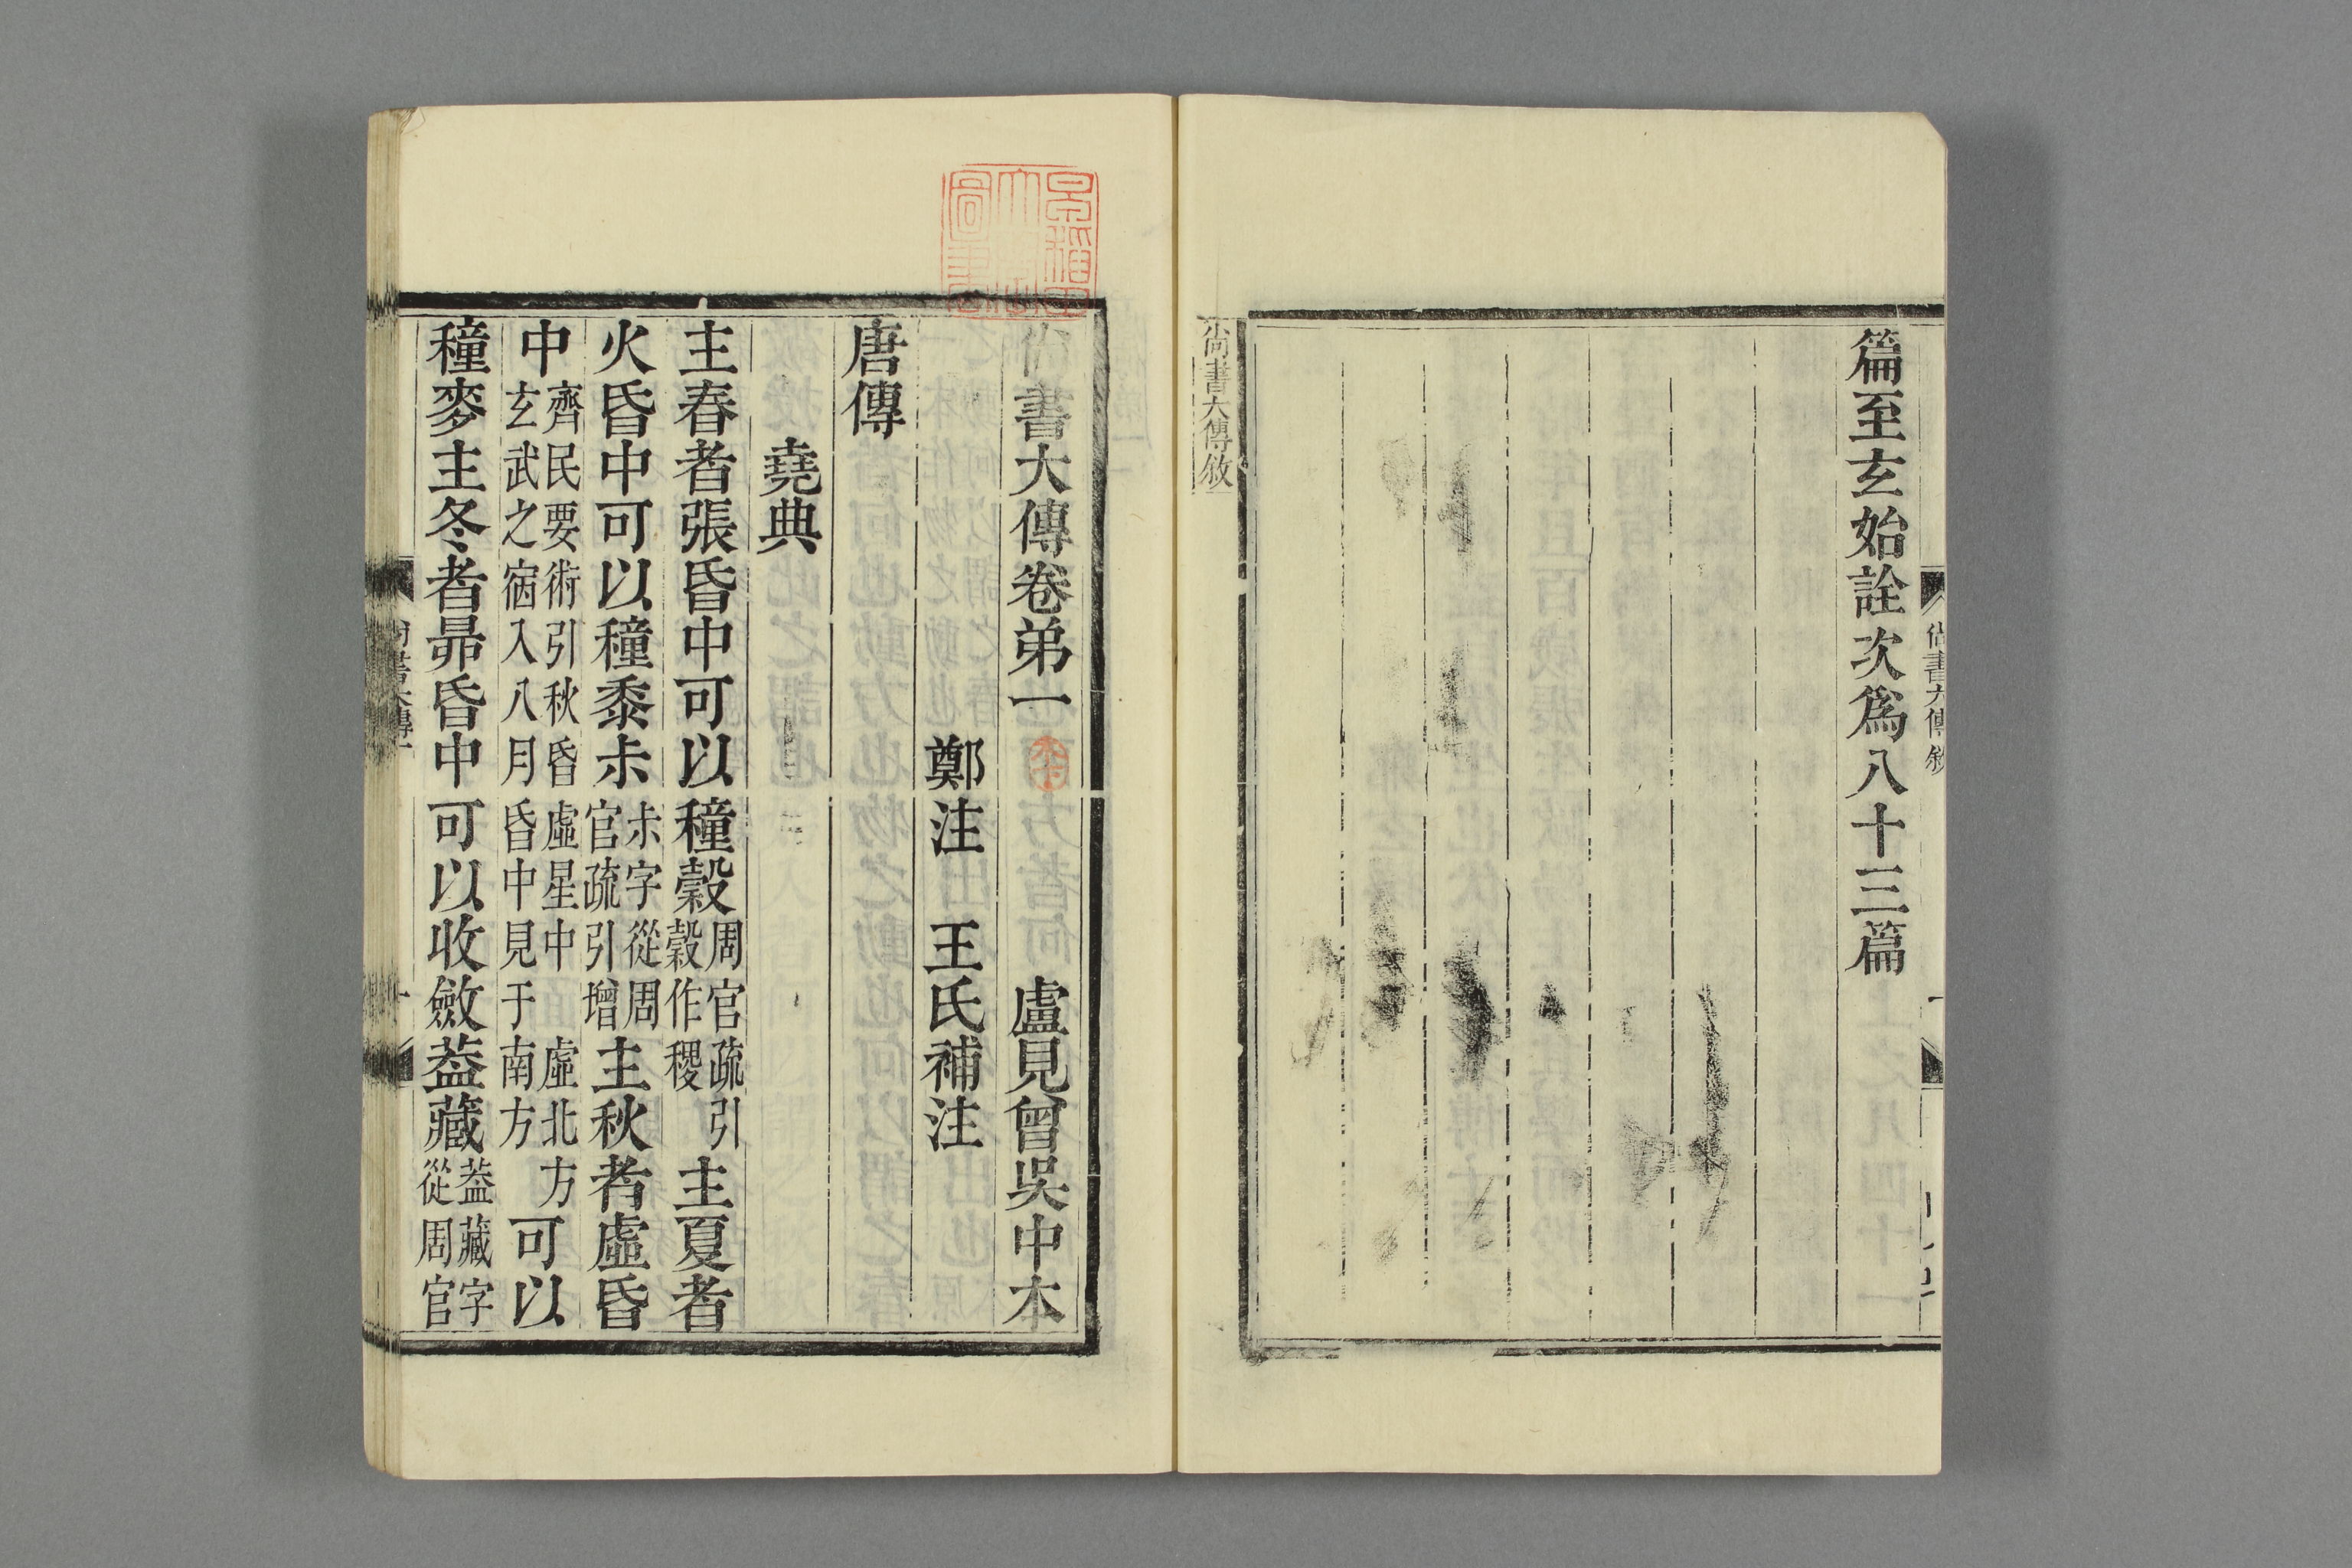 篇至玄始詮次爲八十三篇
尚書大傳敘
尚書大傳卷弟一 盧見曾吳中本
鄭注 王氏補注
唐傳
堯典
主春者張昏中可以穜穀周官疏引穀作稷主夏者
火昏中可以穜黍尗尗字從周官疏引增主秋者虛昏
中齊民要術引秋昏虛星中虛北方玄武之宿入八月昏中見于南方可以
穜麥主冬者昴昏中可以收斂葢藏葢藏字從周官